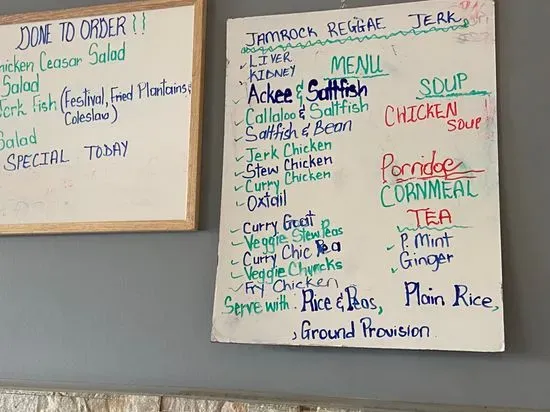 DONE TO ORDER !!
hicken Ceasar Salad
Salad
Jerk Fish (Festival, Fried Plantains,
Coleslaw)
Salad
SPECIAL TODAY
JAMROCK REGGAE JERK
✓ LIVER
✓ KIDNEY
MENU
✓ Ackee & Saltfish
✓ Callaloo & Saltfish
✓ Saltfish & Bean
✓ Jerk Chicken
✓ Stew Chicken
✓ Curry Chicken
✓ Oxtail
✓ Curry Goat
✓ Veggie Stew Peas
✓ Curry Chic Pea
✓ Veggie Chuncks
✓ Fry Chicken
SOUP
CHICKEN
SOUP
Porridge
CORNMEAL
TEA
✓ P. Mint
✓ Ginger
Serve with Rice & Peas, Plain Rice,
, Ground Provision